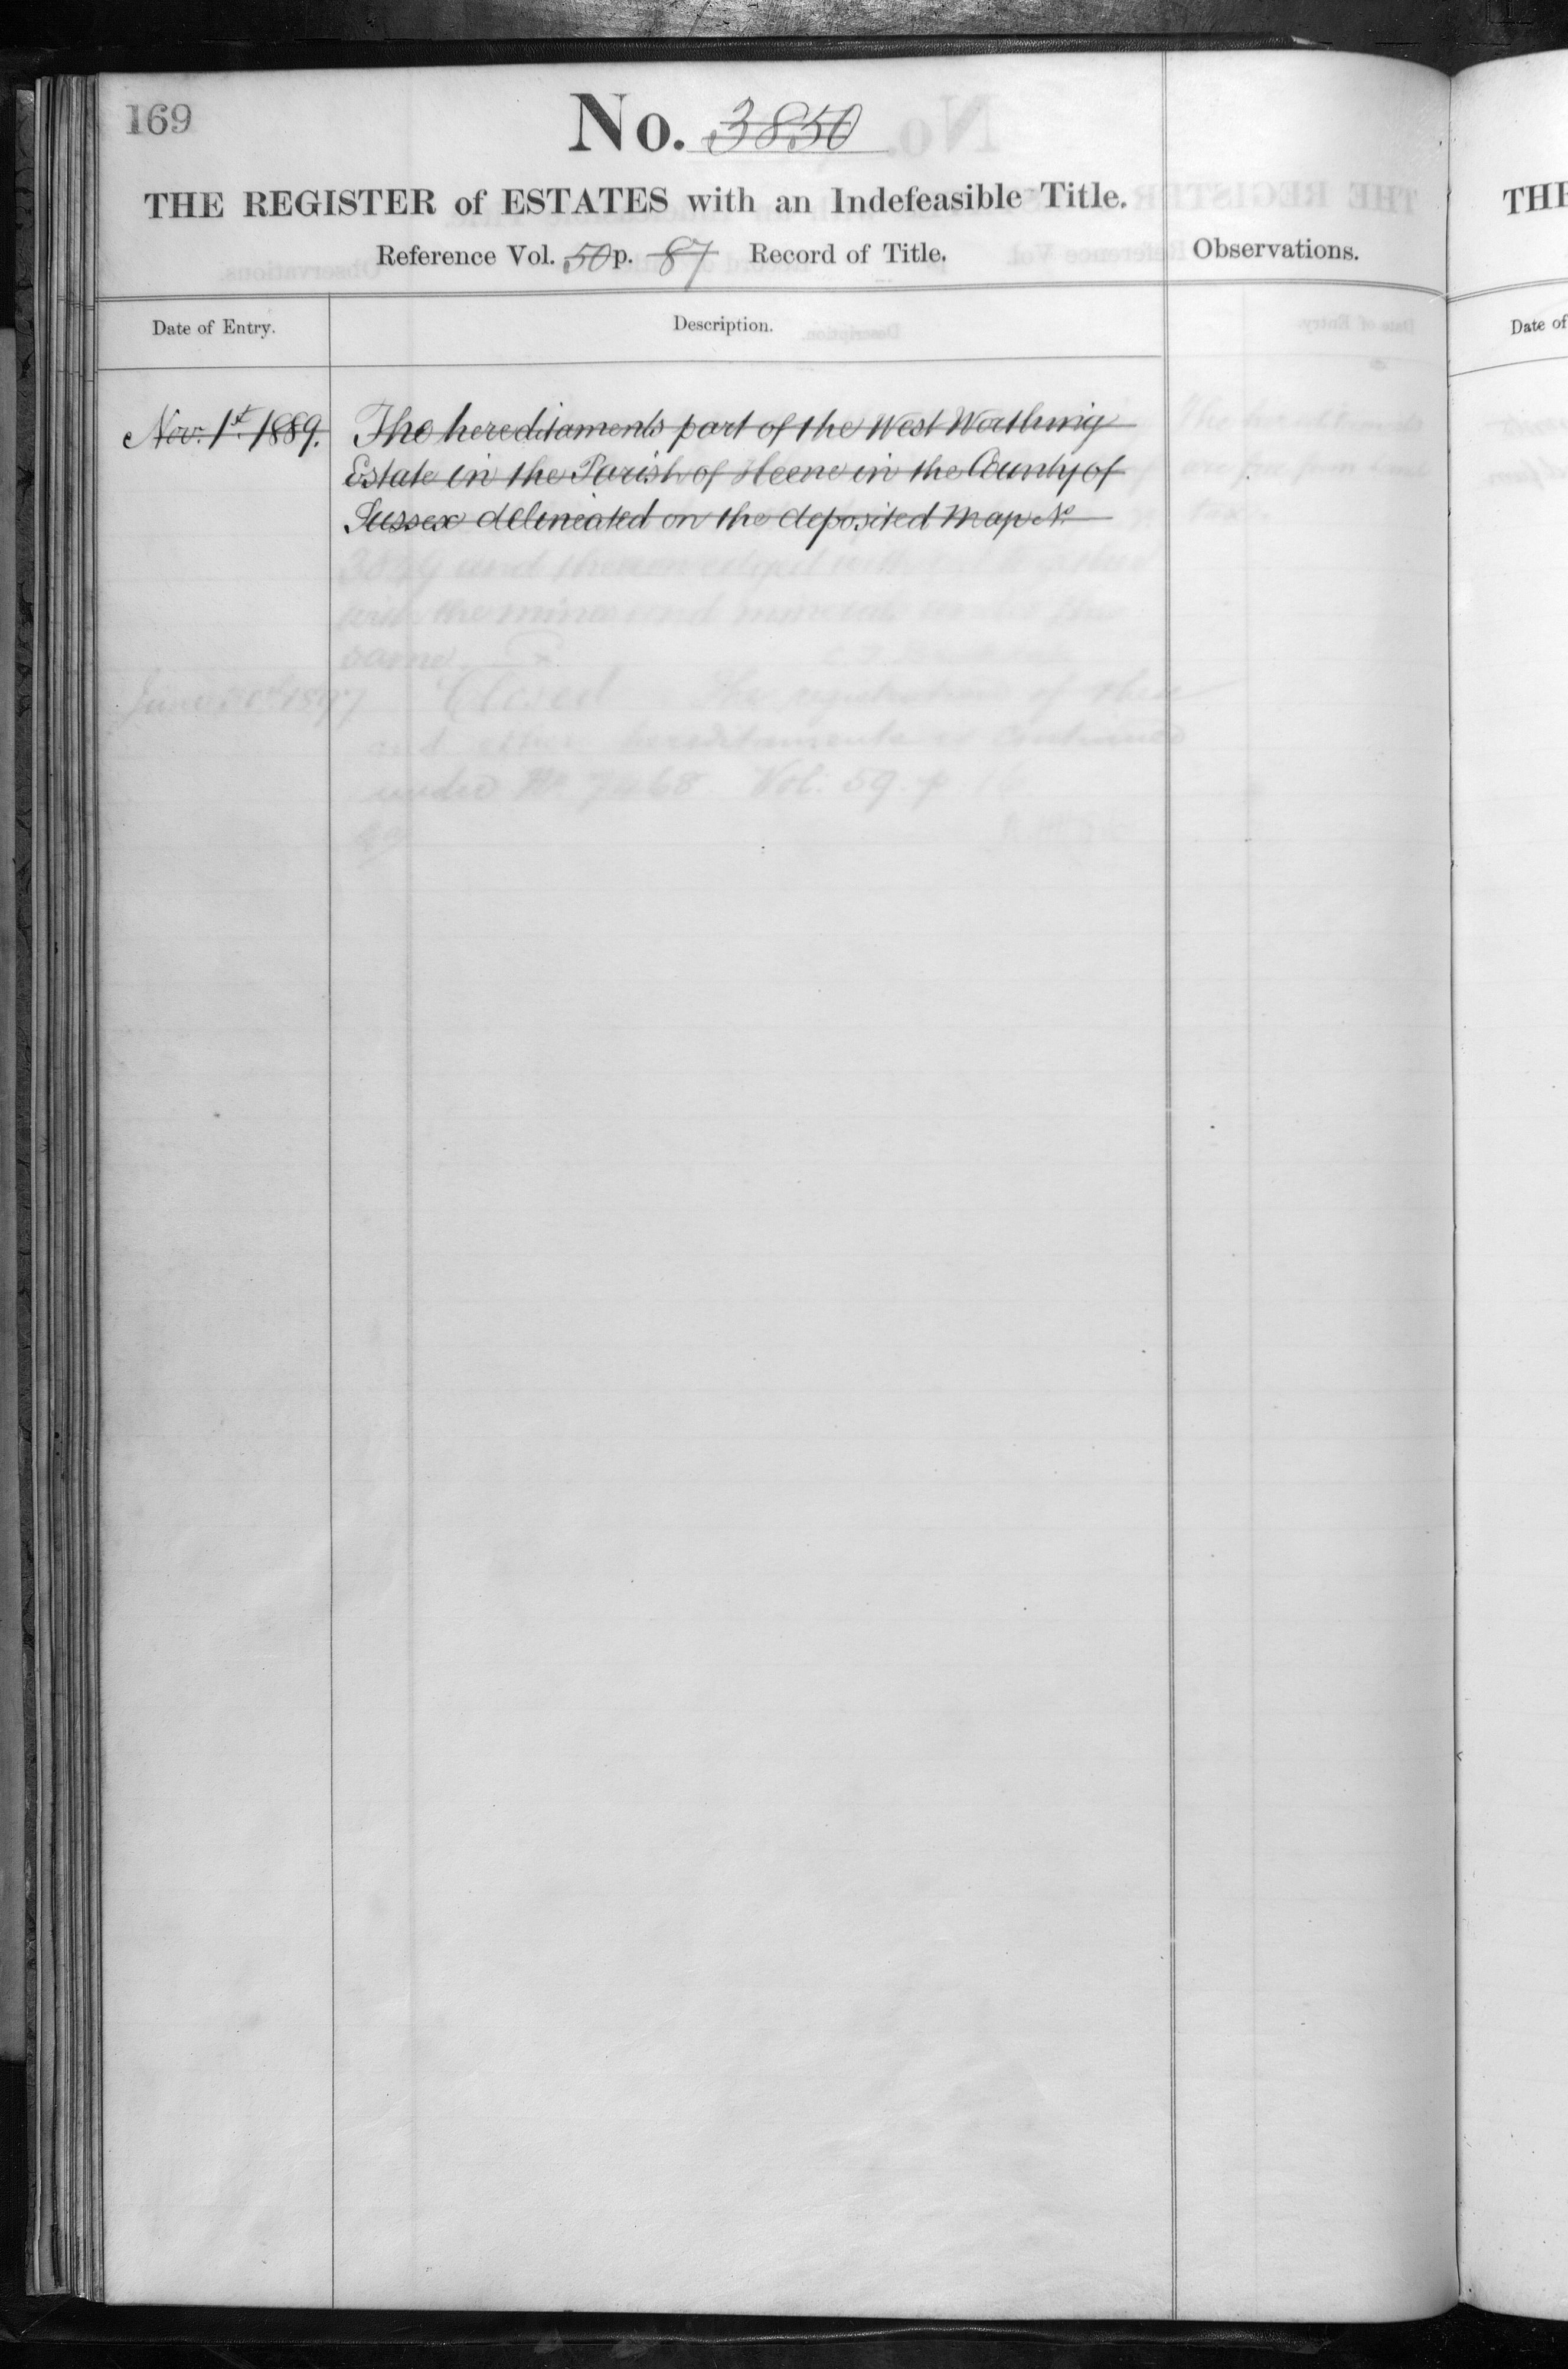 169
No. 3850
THE REGISTER of ESTATES with an Indefeasible Title.
Reference Vol. 50 p. 87 Record of Title.
Observations.
Date of Entry.
Description.
Nov: 1st 1889.
The hereditaments part of the West Worthing
Estate in the Parish of Heene in the County of
Sussex delineated on the deposited Map No
and
the mines and minerals under the
same
June 1897
Closed The registration of these
and other hereditaments is continued
under No 7468 Vol: 59. p 16
The hereditaments
are free from land
tax
THE
Date of